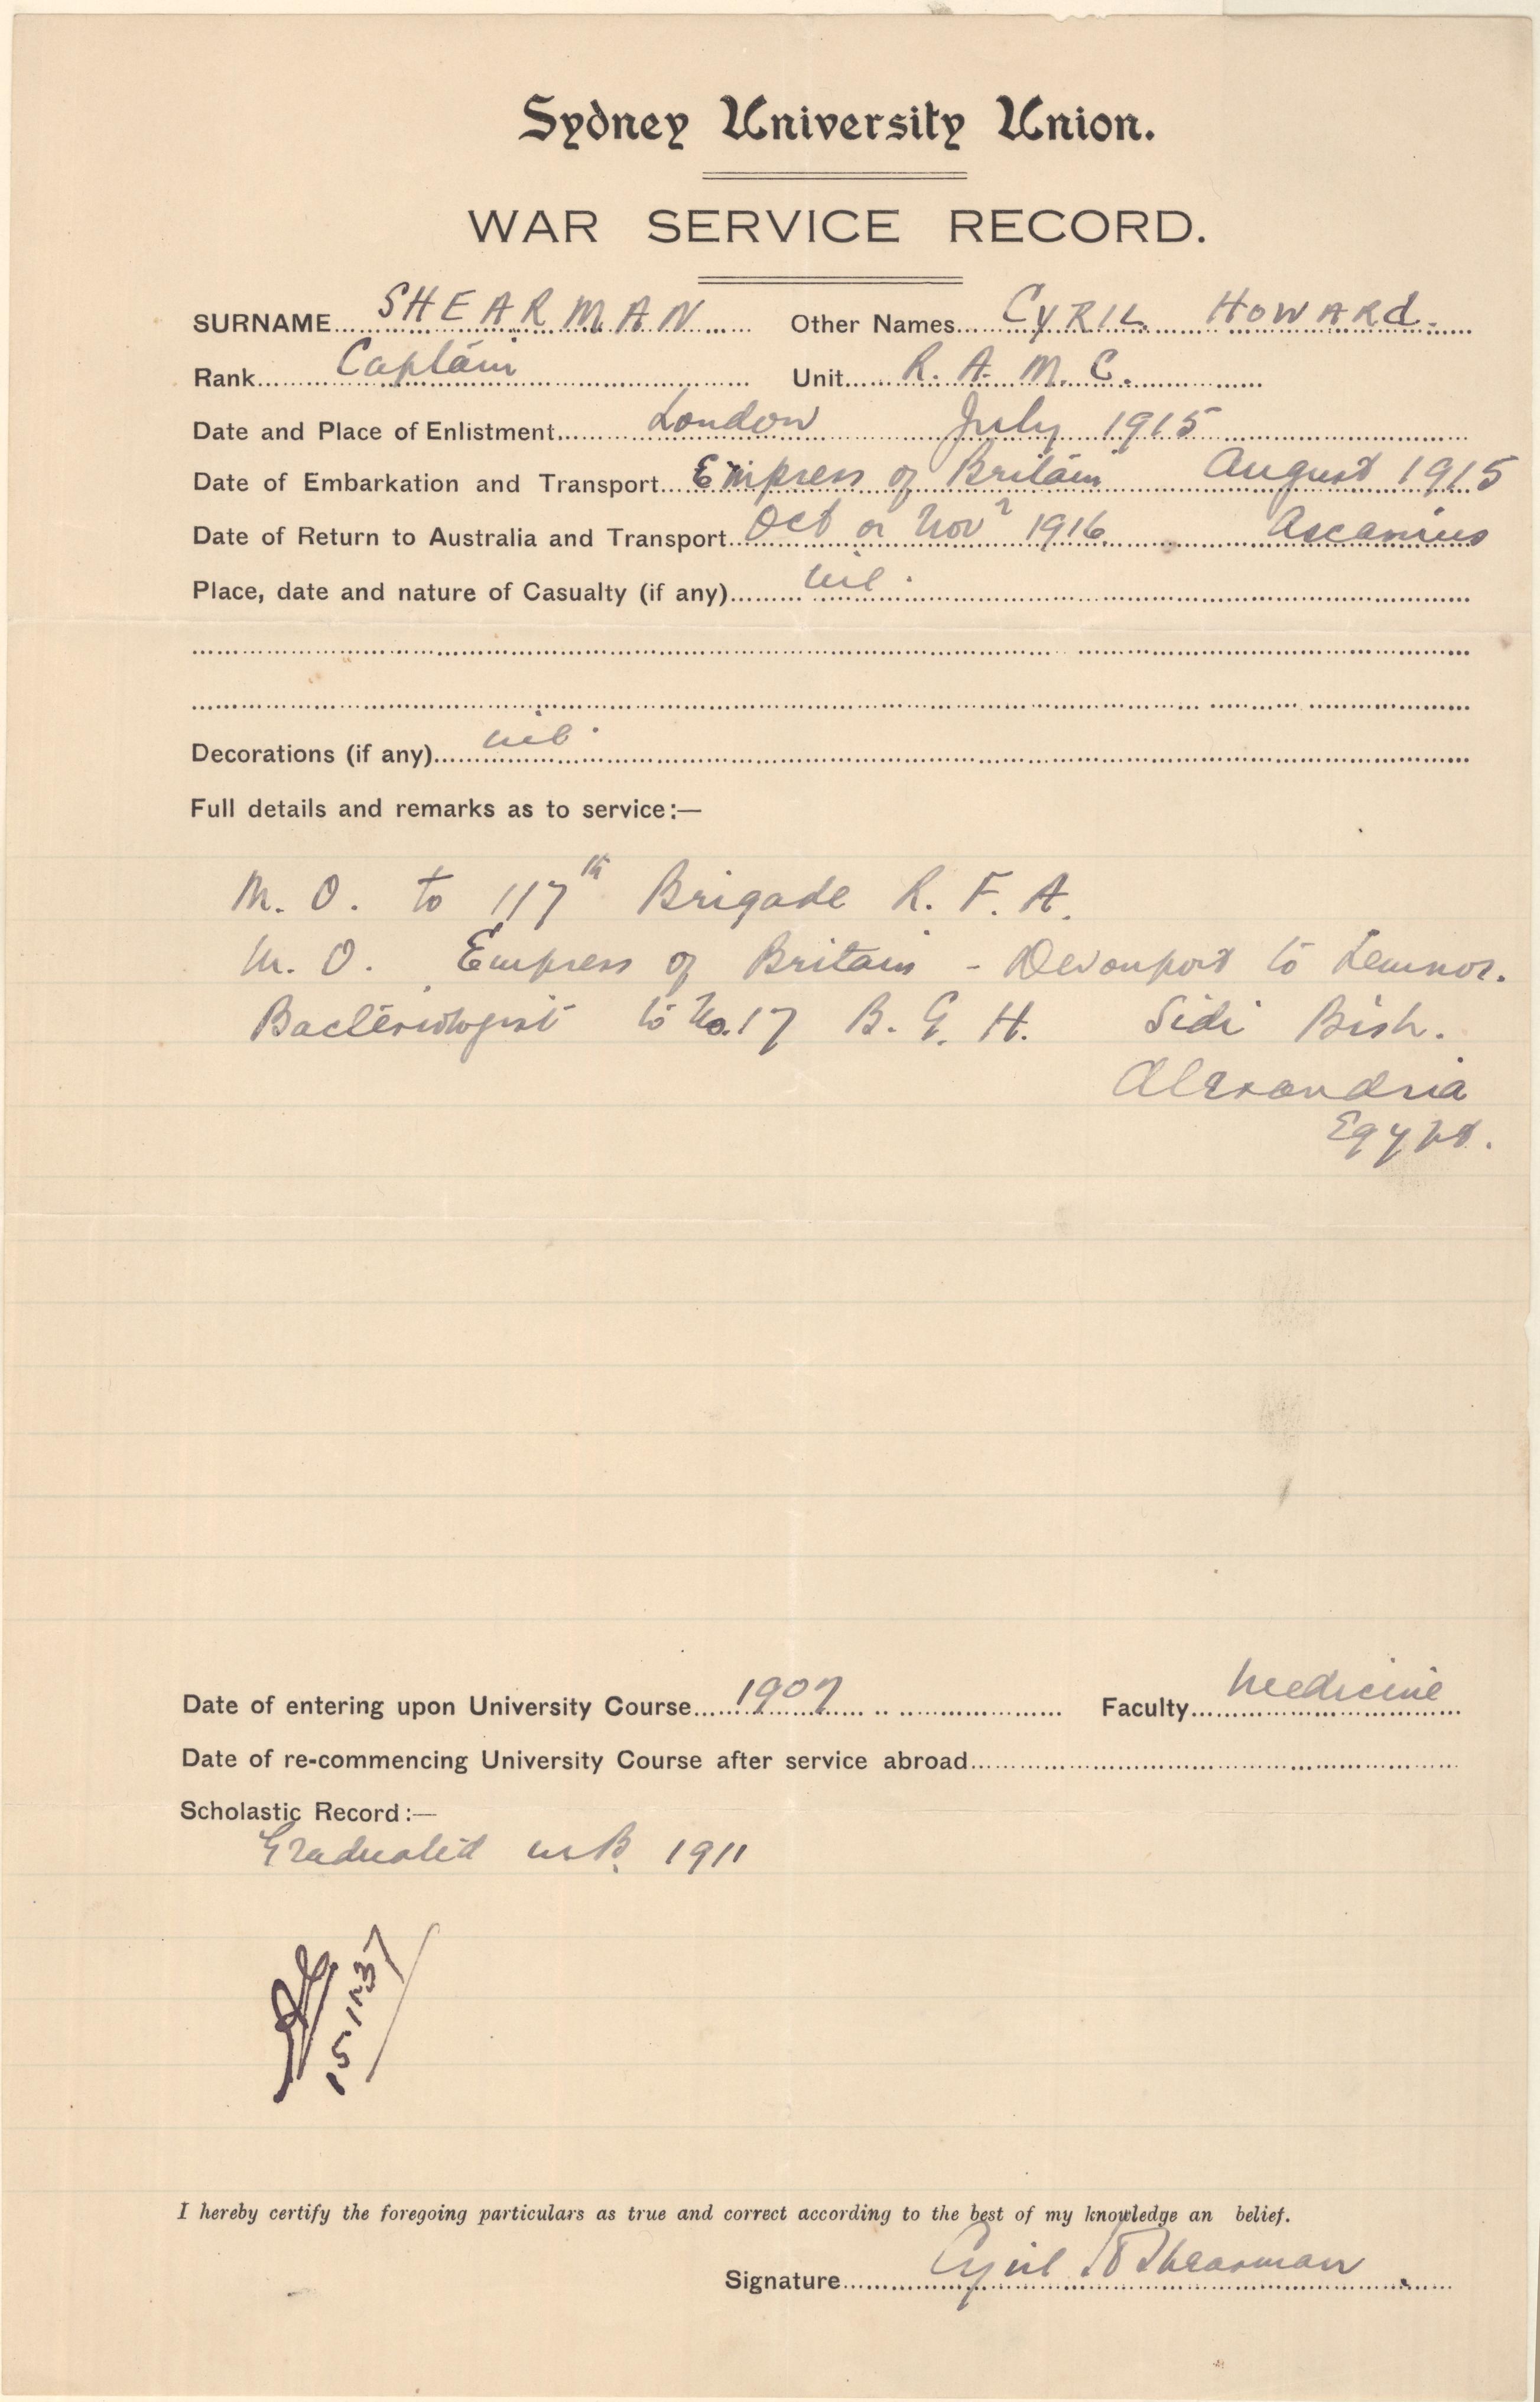 Sydney University Union.
WAR SERVICE RECORD.
SURNAME SHEARMAN Other Names CYRIL HOWARD.
Rank Captain Unit R. A. M. C.
Date and Place of Enlistment London July 1915
Date of Embarkation and Transport Empress of Britain August 1915
Date of Return to Australia and Transport Oct or Nov? 1916 Ascanius
Place, date and nature of Casualty (if any) nil.
Decorations (if any) nil.
Full details and remarks as to service:—
M. O. to 117th Brigade R. F. A.
M. O. Empress of Britain - Devonport to Lemnos.
Bacteriologist to No. 17 B. G. H. Sidi Bish.
Alexandria
Egypt.
Date of entering upon University Course 1907 Faculty Medicine
Date of re-commencing University Course after service abroad
Scholastic Record:—
Graduated M.B. 1911
I hereby certify the foregoing particulars as true and correct according to the best of my knowledge an belief.
Signature Cyril H Shearman